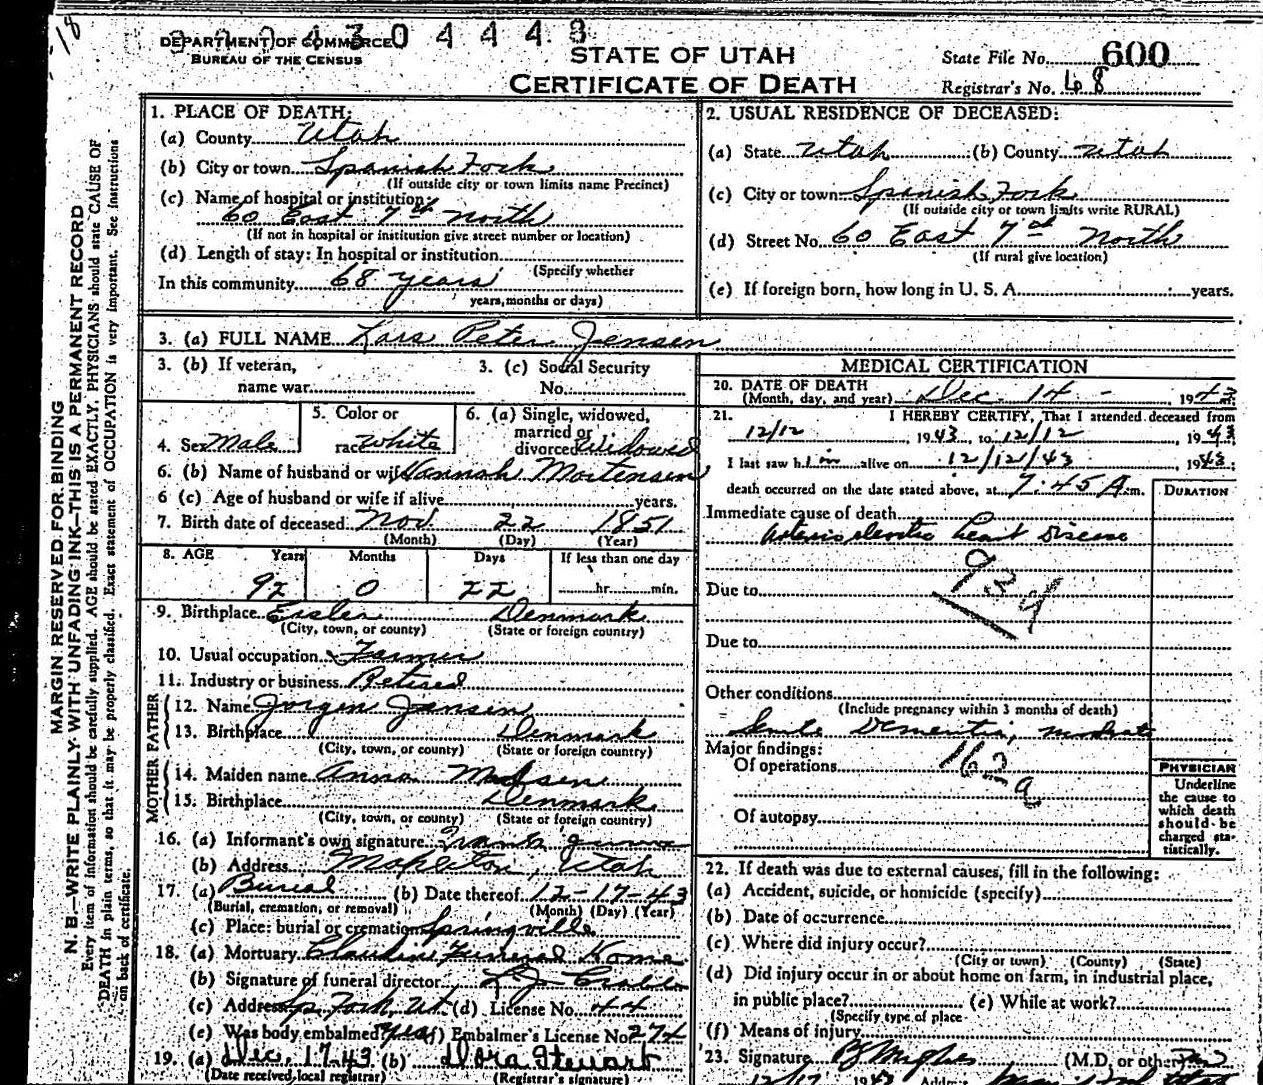 18
3 2 0 4 3 0 4 4 4 8
DEPARTMENT OF COMMERCE
BUREAU OF THE CENSUS
STATE OF UTAH
CERTIFICATE OF DEATH
State File No. 600
Registrar's No. 68
MARGIN RESERVED FOR BINDING
N. B.—WRITE PLAINLY WITH UNFADING INK—THIS IS A PERMANENT RECORD
Every item of information should be carefully supplied. AGE should be stated EXACTLY. PHYSICIANS should state CAUSE OF
DEATH in plain terms, so that it may be properly classified. Exact statement of OCCUPATION is very important. See Instructions
on back of certificate.
1. PLACE OF DEATH:
(a) County Utah
(b) City or town Spanish Fork
(If outside city or town limits name Precinct)
(c) Name of hospital or institution:
60 East 7th North
(If not in hospital or institution give street number or location)
(d) Length of stay: In hospital or institution
(Specify whether
In this community 68 years
years, months or days)
2. USUAL RESIDENCE OF DECEASED:
(a) State Utah (b) County Utah
(c) City or town Spanish Fork
(If outside city or town limits write RURAL)
(d) Street No. 60 East 7th North
(If rural give location)
(e) If foreign born, how long in U. S. A. years.
3. (a) FULL NAME Lars Peter Jensen
3. (b) If veteran,
name war
3. (c) Social Security
No.
4. Sex Male
5. Color or
race White
6. (a) Single, widowed,
married or
divorced Widowed
6. (b) Name of husband or wife Hannah Mortensen
6 (c) Age of husband or wife if alive years.
7. Birth date of deceased Nov. 22 1851
(Month) (Day) (Year)
8. AGE Years Months Days If less than one day
92 0 22 hr. min.
9. Birthplace Eisler Denmark
(City, town, or county) (State or foreign country)
10. Usual occupation Farmer
11. Industry or business Retired
FATHER
12. Name Jorgen Jensen
13. Birthplace Denmark
(City, town, or county) (State or foreign country)
MOTHER
14. Maiden name Anna Madsen
15. Birthplace Denmark
(City, town, or county) (State or foreign country)
16. (a) Informant's own signature Frank
(b) Address Mapleton, Utah
17. (a) Burial (b) Date thereof 12-17-43
(Burial, cremation, or removal) (Month) (Day) (Year)
(c) Place: burial or cremation Springville
18. (a) Mortuary Claudin Funeral Home
(b) Signature of funeral director
(c) Address Sp. Fork, Ut. (d) License No. 44
(e) Was body embalmed yes (f) Embalmer's License No. 274
19. (a) Dec. 17 43 (b) Dora Stewart
(Date received local registrar) (Registrar's signature)
MEDICAL CERTIFICATION
20. DATE OF DEATH
(Month, day, and year) Dec. 14 - 1943
21. I HEREBY CERTIFY, That I attended deceased from
12/12, 1943, to 12/12, 1943
I last saw him alive on 12/12/43, 1943;
death occurred on the date stated above, at 7:45 A.m.
DURATION
Immediate cause of death
Arteriosclerotic heart Disease
93d
Due to
Due to
Other conditions
(Include pregnancy within 3 months of death)
Senile Dementia, moderate
Major findings:
Of operations
162a
Of autopsy
PHYSICIAN
Underline
the cause to
which death
should be
charged sta-
tistically.
22. If death was due to external causes, fill in the following:
(a) Accident, suicide, or homicide (specify)
(b) Date of occurrence
(c) Where did injury occur?
(City or town) (County) (State)
(d) Did injury occur in or about home on farm, in industrial place,
in public place? (e) While at work?
(Specify type of place
(f) Means of injury
23. Signature (M.D. or other)